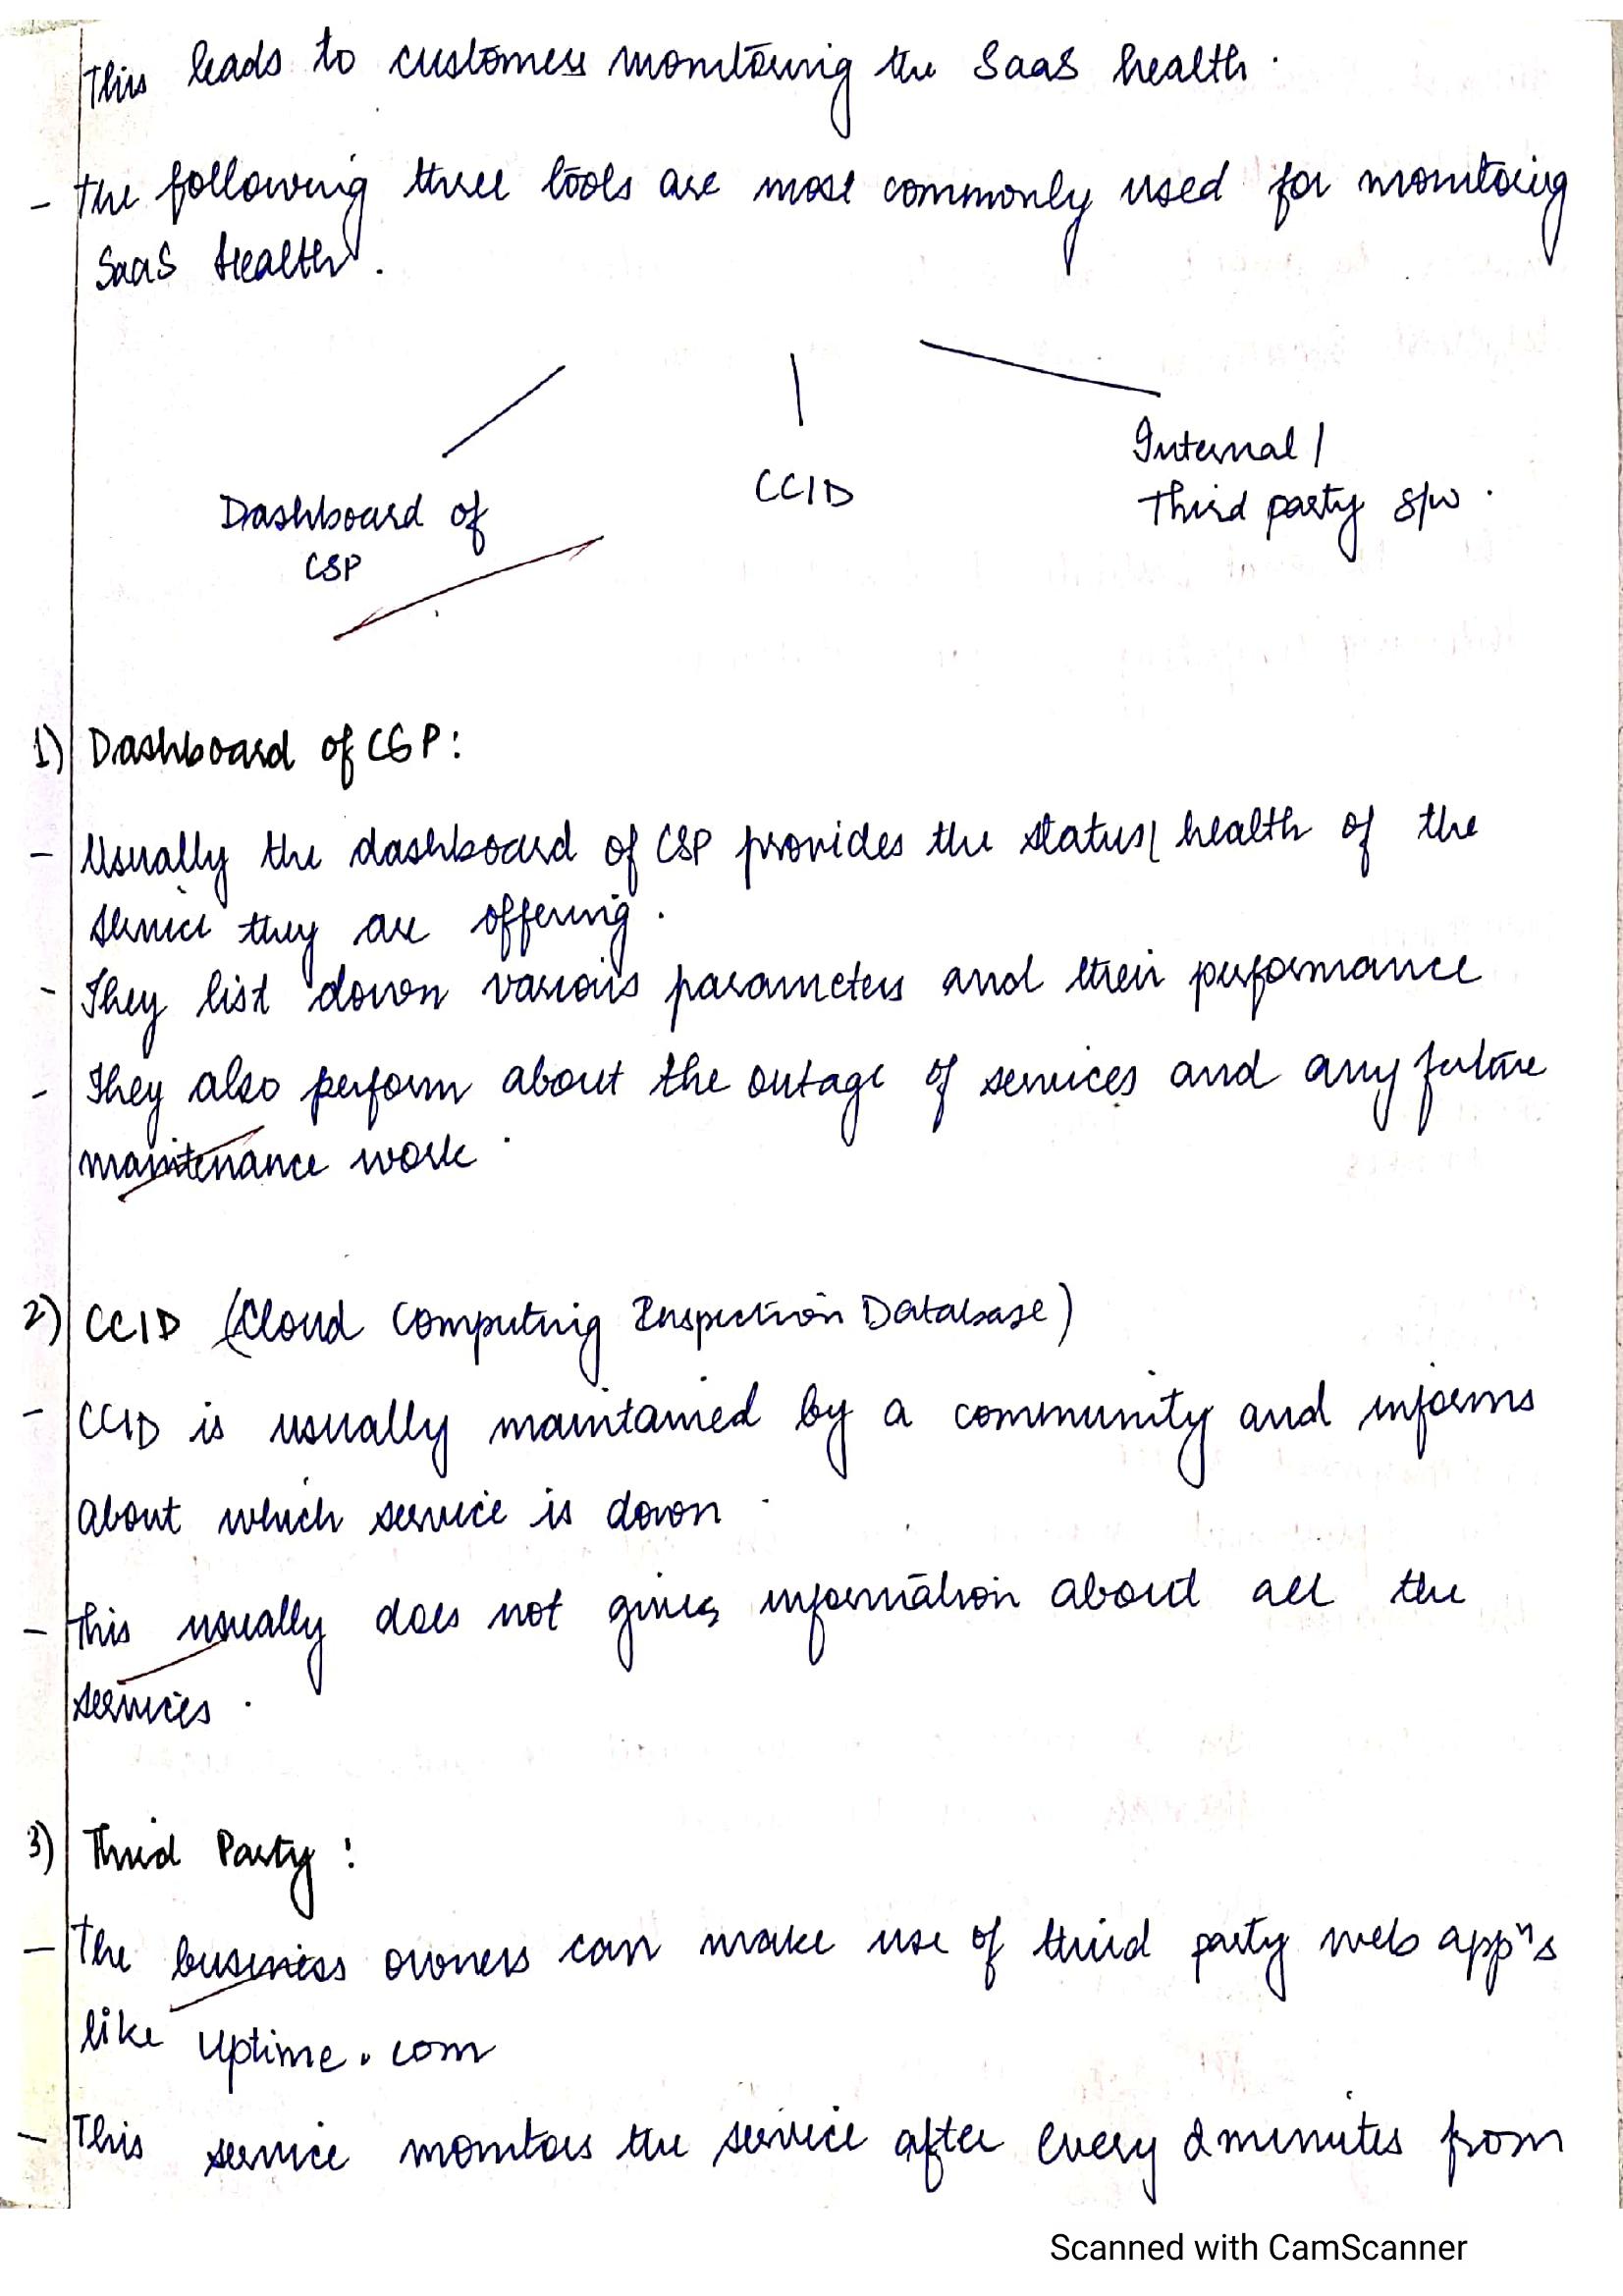 This leads to customers monitoring the SaaS health.
- The following three tools are most commonly used for monitoring
SaaS Health.
Dashboard of
CSP
CCID
Internal /
Third party s/w.
1) Dashboard of CSP:
- Usually the dashboard of CSP provides the status/ health of the
service they are offering.
- They list down various parameters and their performance
- They also perform about the outage of services and any future
maintenance work.
2) CCID (Cloud Computing Inspection Database)
- CCID is usually maintained by a community and informs
about which service is down.
- This usually does not gives information about all the
services.
3) Third Party:
- The business owners can make use of third party web appns
like Uptime.com
- This service monitors the service after every 2 minutes from
Scanned with CamScanner